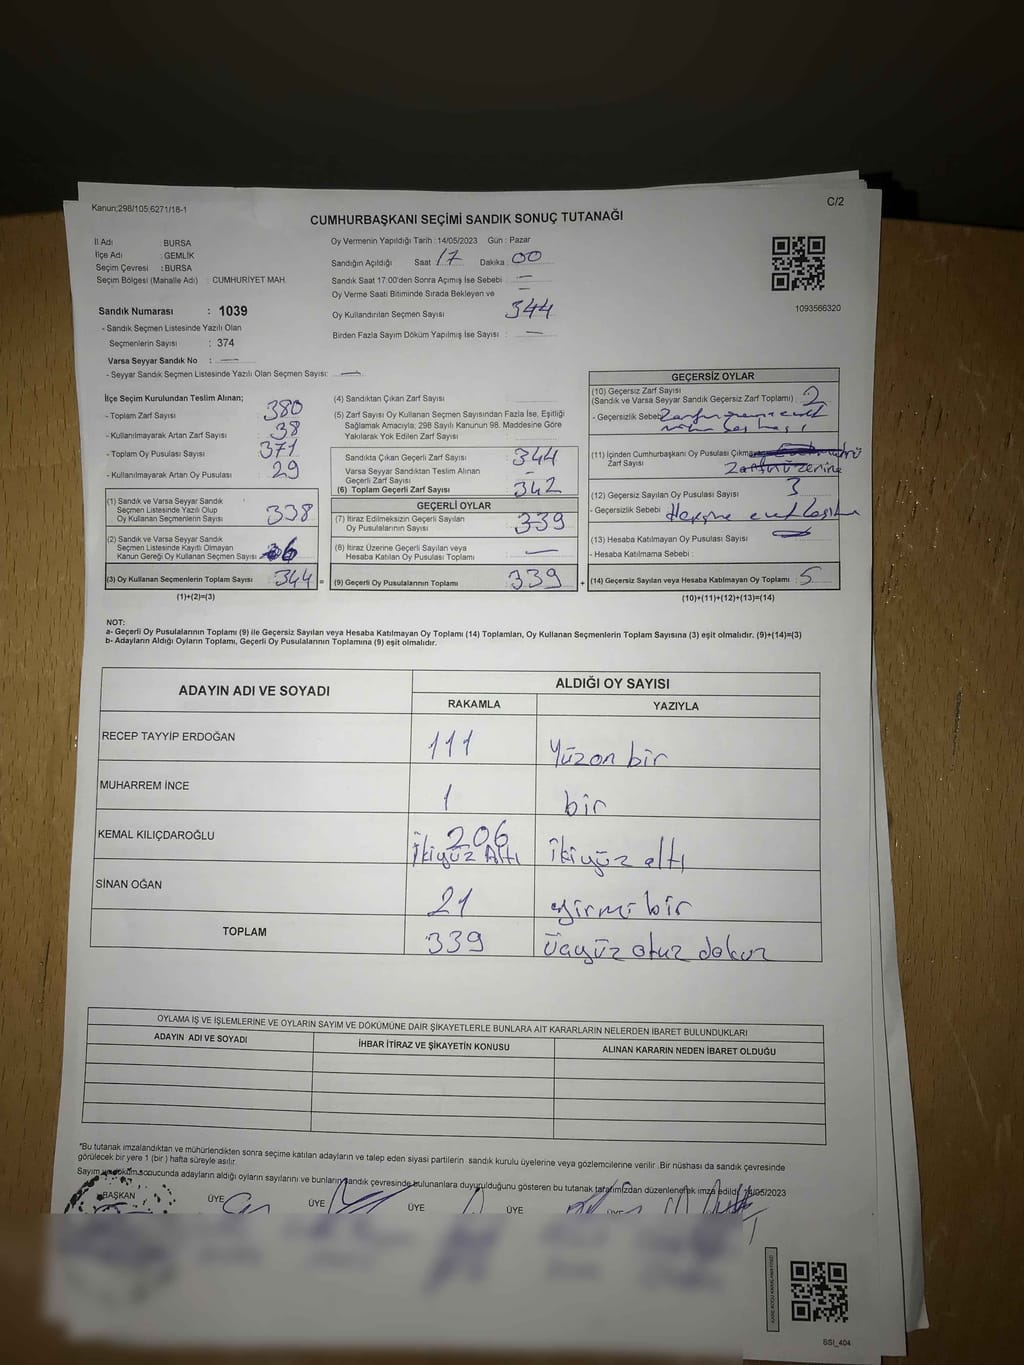 Kanun;298/105;6271/18-1
C/2
CUMHURBAŞKANI SEÇİMİ SANDIK SONUÇ TUTANAĞI
İl Adı : BURSA
İlçe Adı : GEMLİK
Seçim Çevresi : BURSA
Seçim Bölgesi (Mahalle Adı) : CUMHURİYET MAH
Oy Vermenin Yapıldığı Tarih : 14/05/2023 Gün : Pazar
Sandığın Açıldığı Saat 17 Dakika 00
Sandık Saat 17:00'den Sonra Açılmış İse Sebebi : —
Oy Verme Saati Bitiminde Sırada Bekleyen ve
Oy Kullandırılan Seçmen Sayısı 344
Birden Fazla Sayım Döküm Yapılmış İse Sayısı : —
1093566320
Sandık Numarası : 1039
- Sandık Seçmen Listesinde Yazılı Olan
Seçmenlerin Sayısı : 374
Varsa Seyyar Sandık No : —
- Seyyar Sandık Seçmen Listesinde Yazılı Olan Seçmen Sayısı: —
İlçe Seçim Kurulundan Teslim Alınan;
- Toplam Zarf Sayısı 380
- Kullanılmayarak Artan Zarf Sayısı 38
- Toplam Oy Pusulası Sayısı 371
- Kullanılmayarak Artan Oy Pusulası 29
(1) Sandık ve Varsa Seyyar Sandık
Seçmen Listesinde Yazılı Olup
Oy Kullanan Seçmenlerin Sayısı 338
(2) Sandık ve Varsa Seyyar Sandık
Seçmen Listesinde Kayıtlı Olmayan
Kanun Gereği Oy Kullanan Seçmen Sayısı 6
(3) Oy Kullanan Seçmenlerin Toplam Sayısı 344 =
(1)+(2)=(3)
(4) Sandıktan Çıkan Zarf Sayısı :
(5) Zarf Sayısı Oy Kullanan Seçmen Sayısından Fazla İse, Eşitliği
Sağlamak Amacıyla; 298 Sayılı Kanunun 98. Maddesine Göre
Yakılarak Yok Edilen Zarf Sayısı :
Sandıkta Çıkan Geçerli Zarf Sayısı : 344
Varsa Seyyar Sandıktan Teslim Alınan
Geçerli Zarf Sayısı : -
(6) Toplam Geçerli Zarf Sayısı : 342
GEÇERLİ OYLAR
(7) İtiraz Edilmeksizin Geçerli Sayılan
Oy Pusulalarının Sayısı : 339
(8) İtiraz Üzerine Geçerli Sayılan veya
Hesaba Katılan Oy Pusulası Toplamı : —
(9) Geçerli Oy Pusulalarının Toplamı : 339 +
GEÇERSİZ OYLAR
(10) Geçersiz Zarf Sayısı
(Sandık ve Varsa Seyyar Sandık Geçersiz Zarf Toplamı) : 2
- Geçersizlik Sebebi
(11) İçinden Cumhurbaşkanı Oy Pusulası Çıkmayan
Zarf Sayısı
Zarfın üzerine
(12) Geçersiz Sayılan Oy Pusulası Sayısı 3
- Geçersizlik Sebebi :
(13) Hesaba Katılmayan Oy Pusulası Sayısı :
- Hesaba Katılmama Sebebi :
(14) Geçersiz Sayılan veya Hesaba Katılmayan Oy Toplamı : 5
(10)+(11)+(12)+(13)=(14)
NOT:
a- Geçerli Oy Pusulalarının Toplamı (9) ile Geçersiz Sayılan veya Hesaba Katılmayan Oy Toplamı (14) Toplamları, Oy Kullanan Seçmenlerin Toplam Sayısına (3) eşit olmalıdır. (9)+(14)=(3)
b- Adayların Aldığı Oyların Toplamı, Geçerli Oy Pusulalarının Toplamına (9) eşit olmalıdır.
ADAYIN ADI VE SOYADI ALDIĞI OY SAYISI
RAKAMLA YAZIYLA
RECEP TAYYİP ERDOĞAN 111 Yüzon bir
MUHARREM İNCE 1 bir
KEMAL KILIÇDAROĞLU 206 İkiyüz Altı ikiyüz altı
SİNAN OĞAN 21 yirmi bir
TOPLAM 339 üçyüz otuz dokuz
OYLAMA İŞ VE İŞLEMLERİNE VE OYLARIN SAYIM VE DÖKÜMÜNE DAİR ŞİKAYETLERLE BUNLARA AİT KARARLARIN NELERDEN İBARET BULUNDUKLARI
ADAYIN ADI VE SOYADI İHBAR İTİRAZ VE ŞİKAYETİN KONUSU ALINAN KARARIN NEDEN İBARET OLDUĞU
*Bu tutanak imzalandıktan ve mühürlendikten sonra seçime katılan adayların ve talep eden siyasi partilerin sandık kurulu üyelerine veya gözlemcilerine verilir .Bir nüshası da sandık çevresinde
görülecek bir yere 1 (bir ) hafta süreyle asılır.
Sayım ve döküm sonucunda adayların aldığı oyların sayılarını ve bunların sandık çevresinde bulunanlara duyurulduğunu gösteren bu tutanak tarafımızdan düzenlenerek imza edildi. 14/05/2023
BAŞKAN ÜYE ÜYE ÜYE ÜYE ÜYE
SSI_404